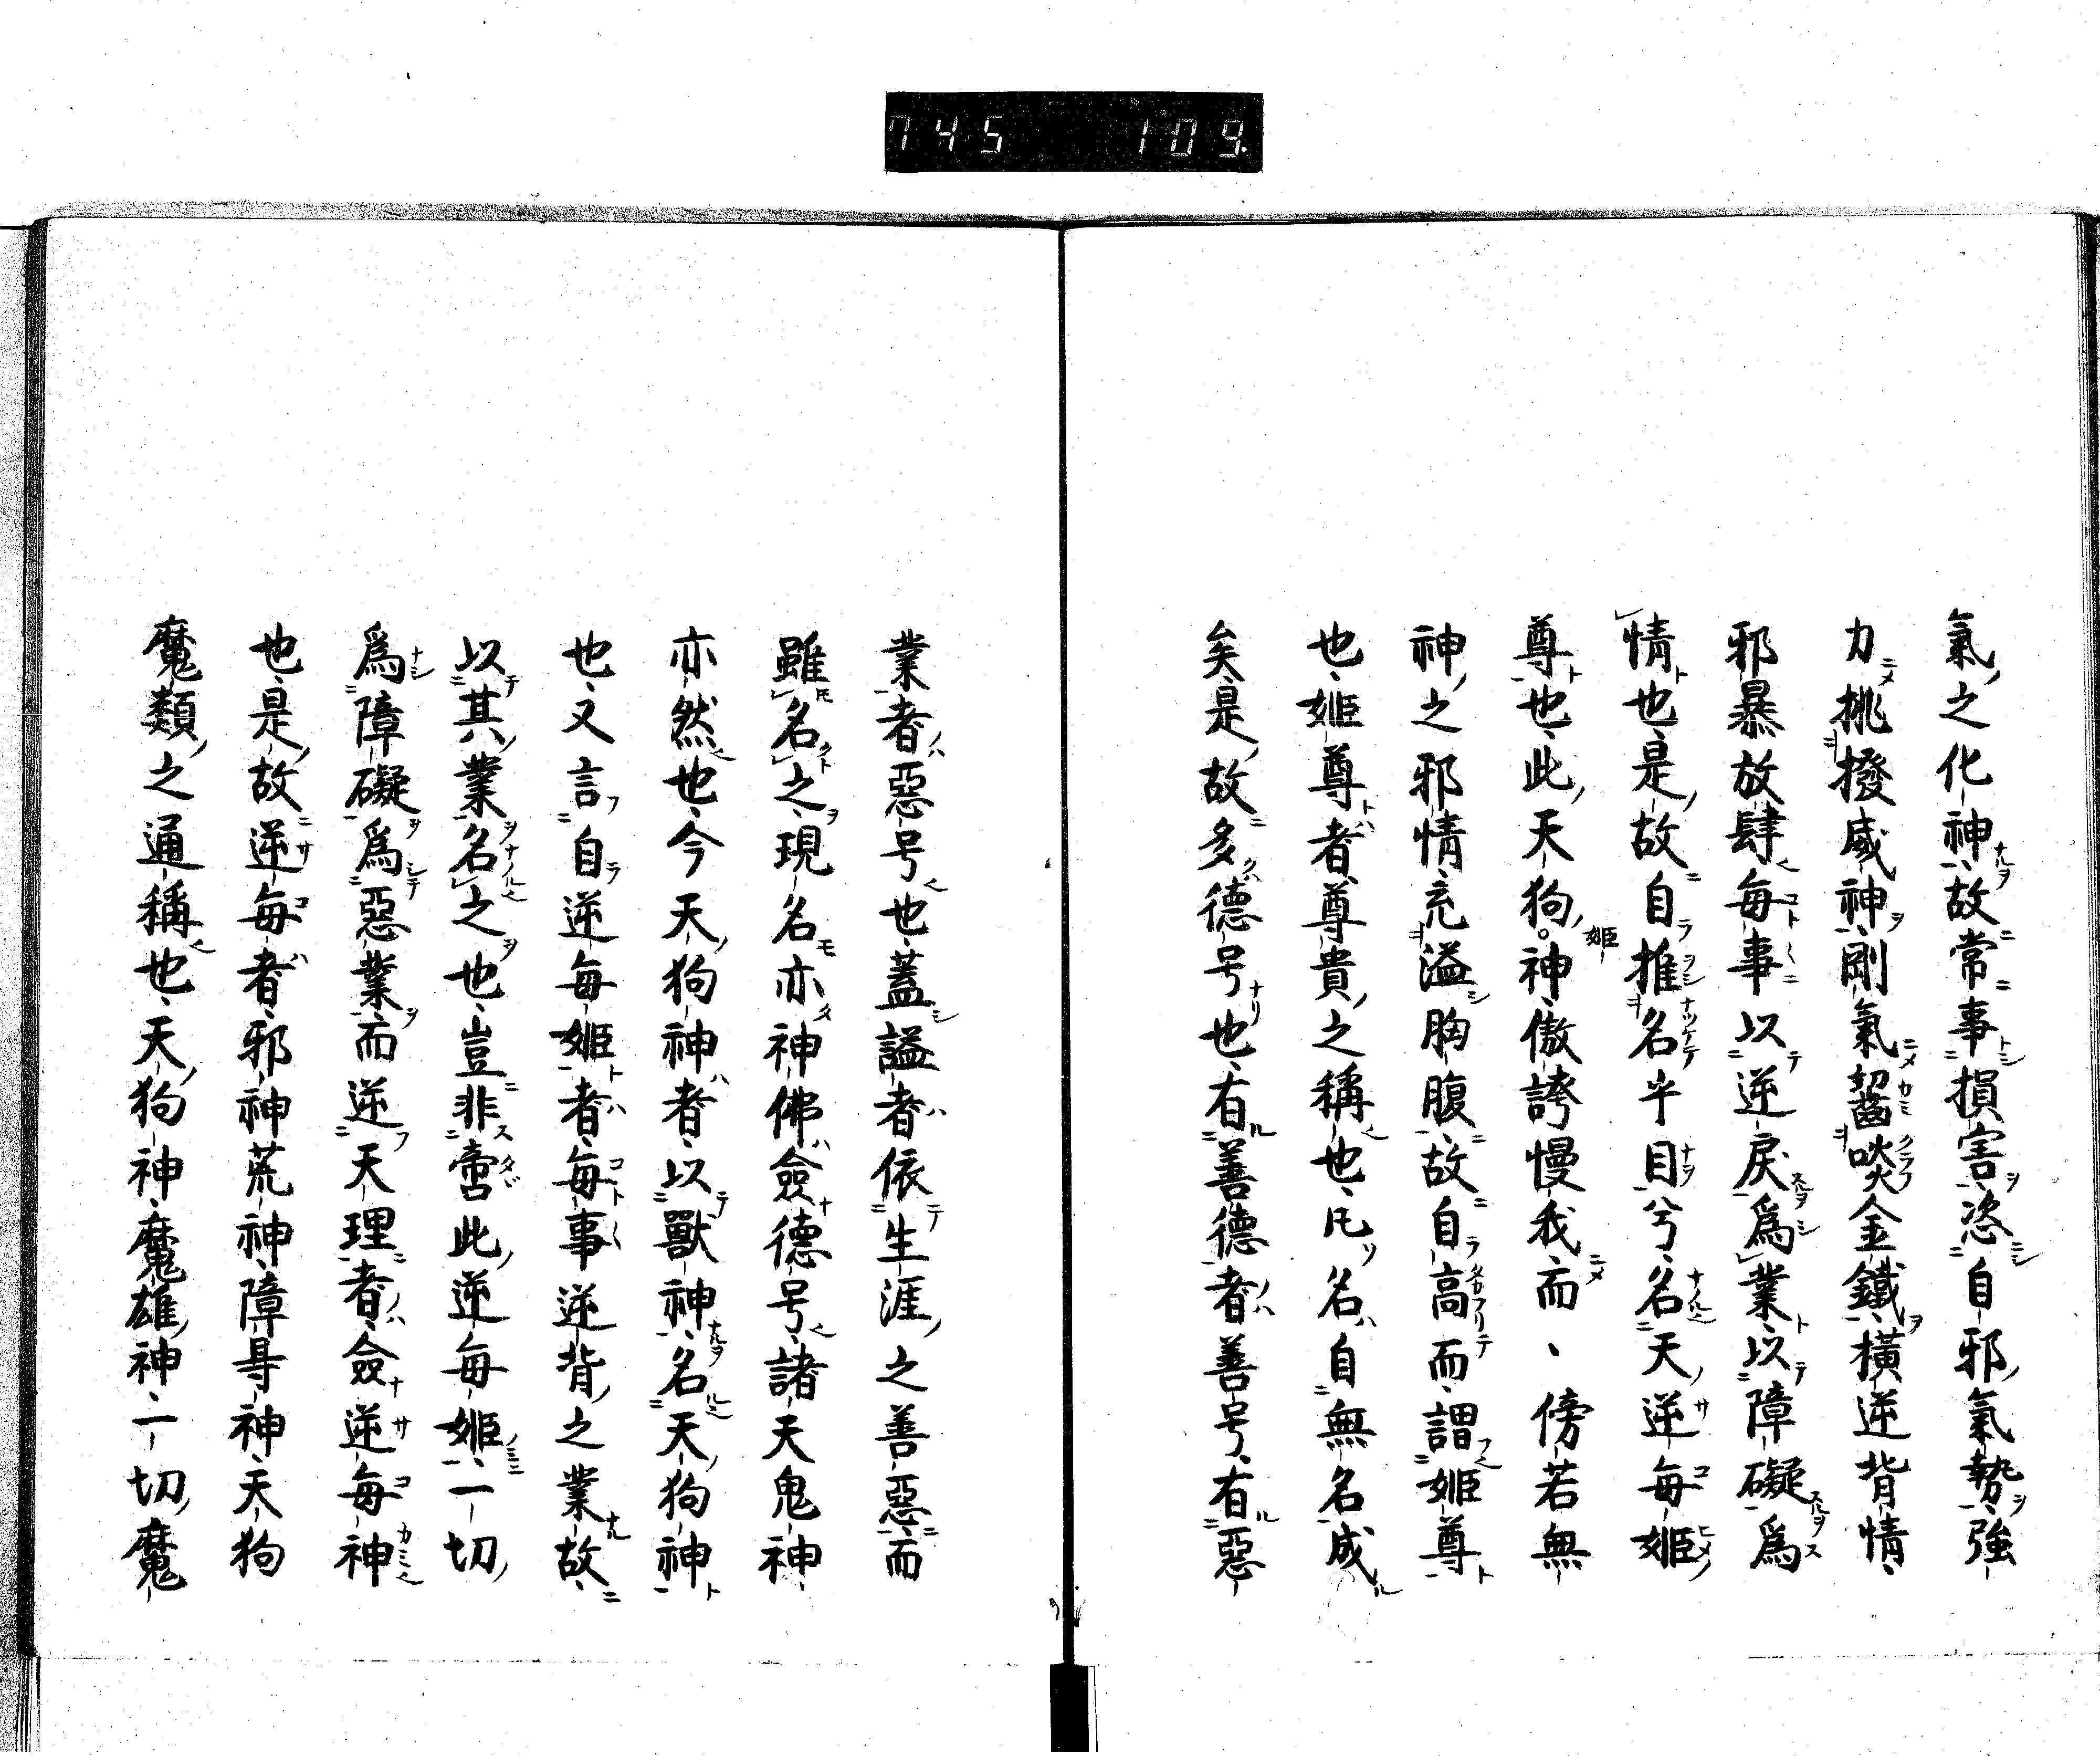 745 109.
氣之化神故常事損害恣自邪氣勢強
力挑撥威神剛氣齧啖金鐵橫逆背情
邪暴放肆每事以逆戾爲業以障礙爲
情也是故自推名乎目兮名天逆每姬
尊也此天狗姬神傲誇慢我而傍若無
神之邪情充溢胸腹故自高而謂姬尊
也姬尊者尊貴之稱也凡名自無名成
矣是故多德号也有善德者善号有惡
業者惡号也蓋謚者依生涯之善惡而
雖名之現名亦神佛僉德号諸天鬼神
亦然也今天狗神者以獸神名天狗神
也又言自逆每姬者每事逆背之業故
以其業名之也豈非啻此逆每姬一切
爲障礙爲惡業而逆天理者僉逆每神
也是故逆每者邪神荒神障㝵神天狗
魔類之通稱也天狗神魔雄神一切魔